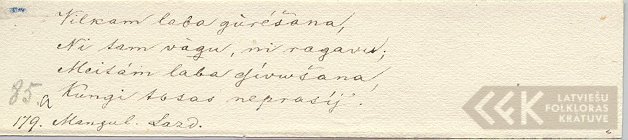 Vilkam laba gùŕéšana,
Ni tam vàgu, ni ragavu;
Meitám laba dʹívwšana,
Kungi tosas neprasíj.
85.a
179. Mangul. Lazd.
LATVIEŠU
FOLKLORAS
KRĀTUVE